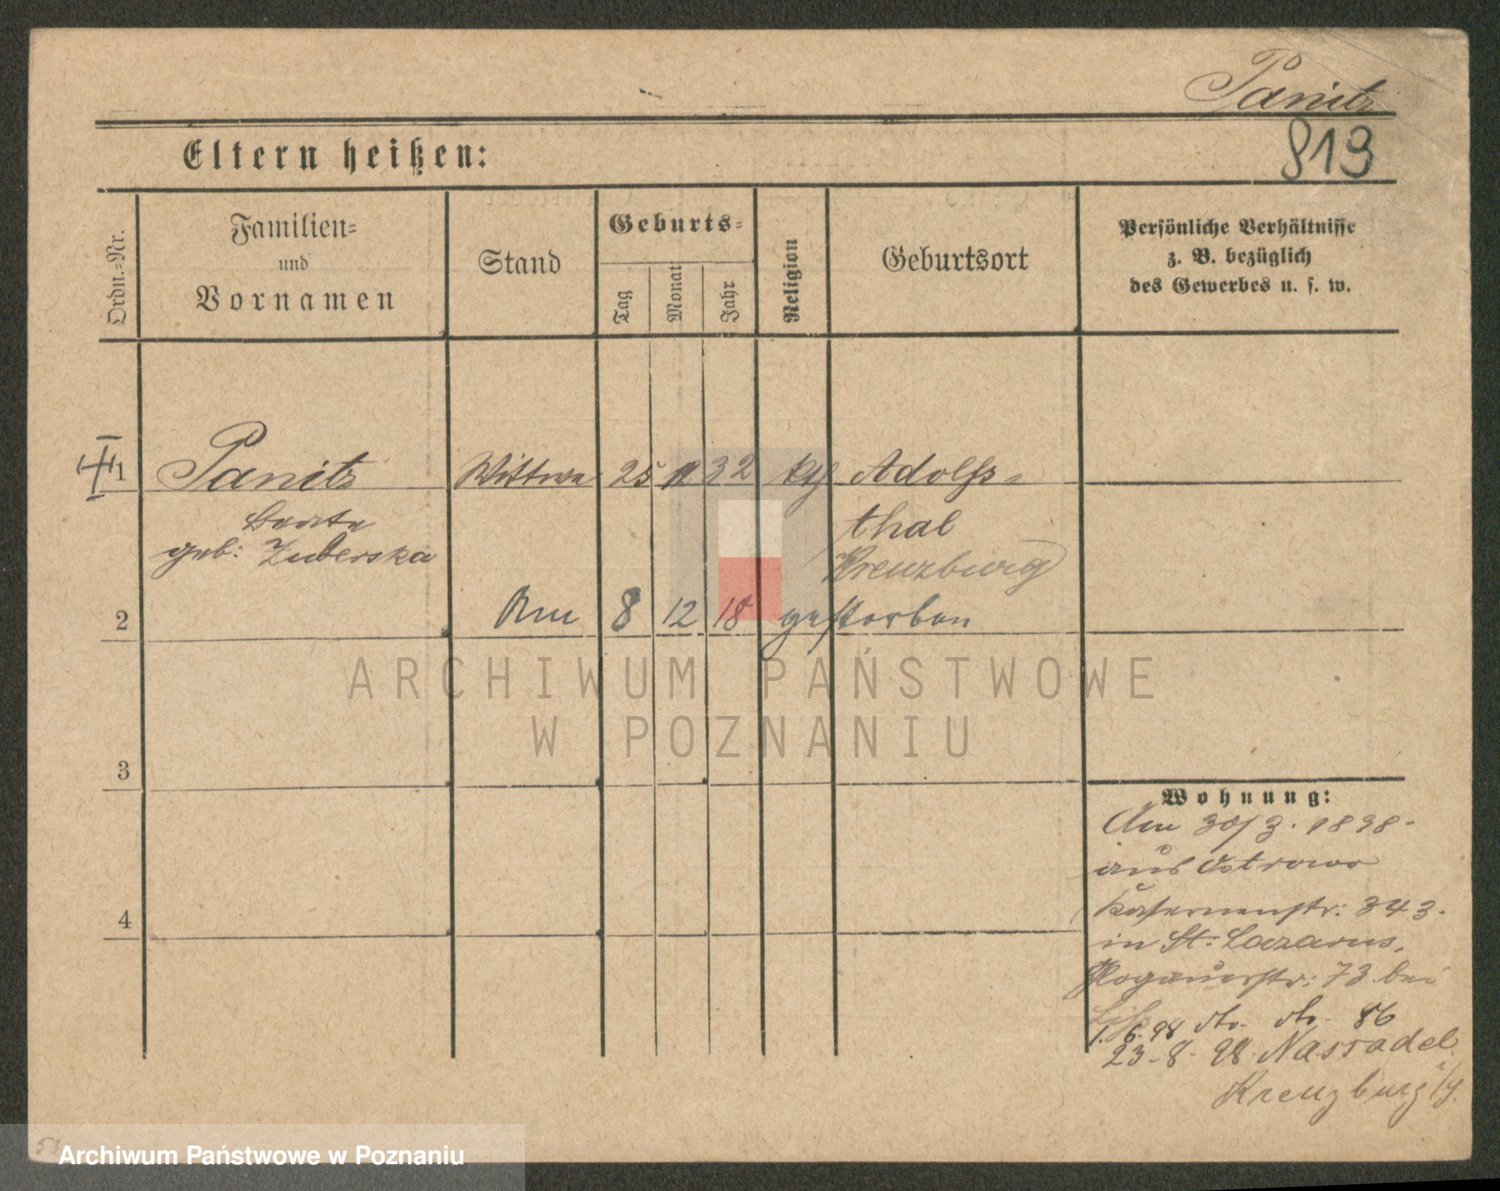 Panitz
819
Eltern heißen:
Ordn.-Nr.
Familien-
und
Vornamen
Stand
Geburts-
Tag
Monat
Jahr
Religion
Geburtsort
Persönliche Verhältnisse
z. B. bezüglich
des Gewerbes u. s. w.
1 Panitz Wittwe 25 11 32 Adolfs-
Beate thal
geb: Zuberska
Kreuzburg
2 Am 8 12 18 gestorben
3
4
Wohnung:
Am 30/3. 1898.
aus Ostrowo
Kasernenstr: 343.
in St: Lazarus,
Glogauerstr: 73 bei
1. 6. 98 dto. dto. 86
23-8-98 Nassadel
Kreuzburg
ARCHIWUM PAŃSTWOWE
W POZNANIU
Archiwum Państwowe w Poznaniu